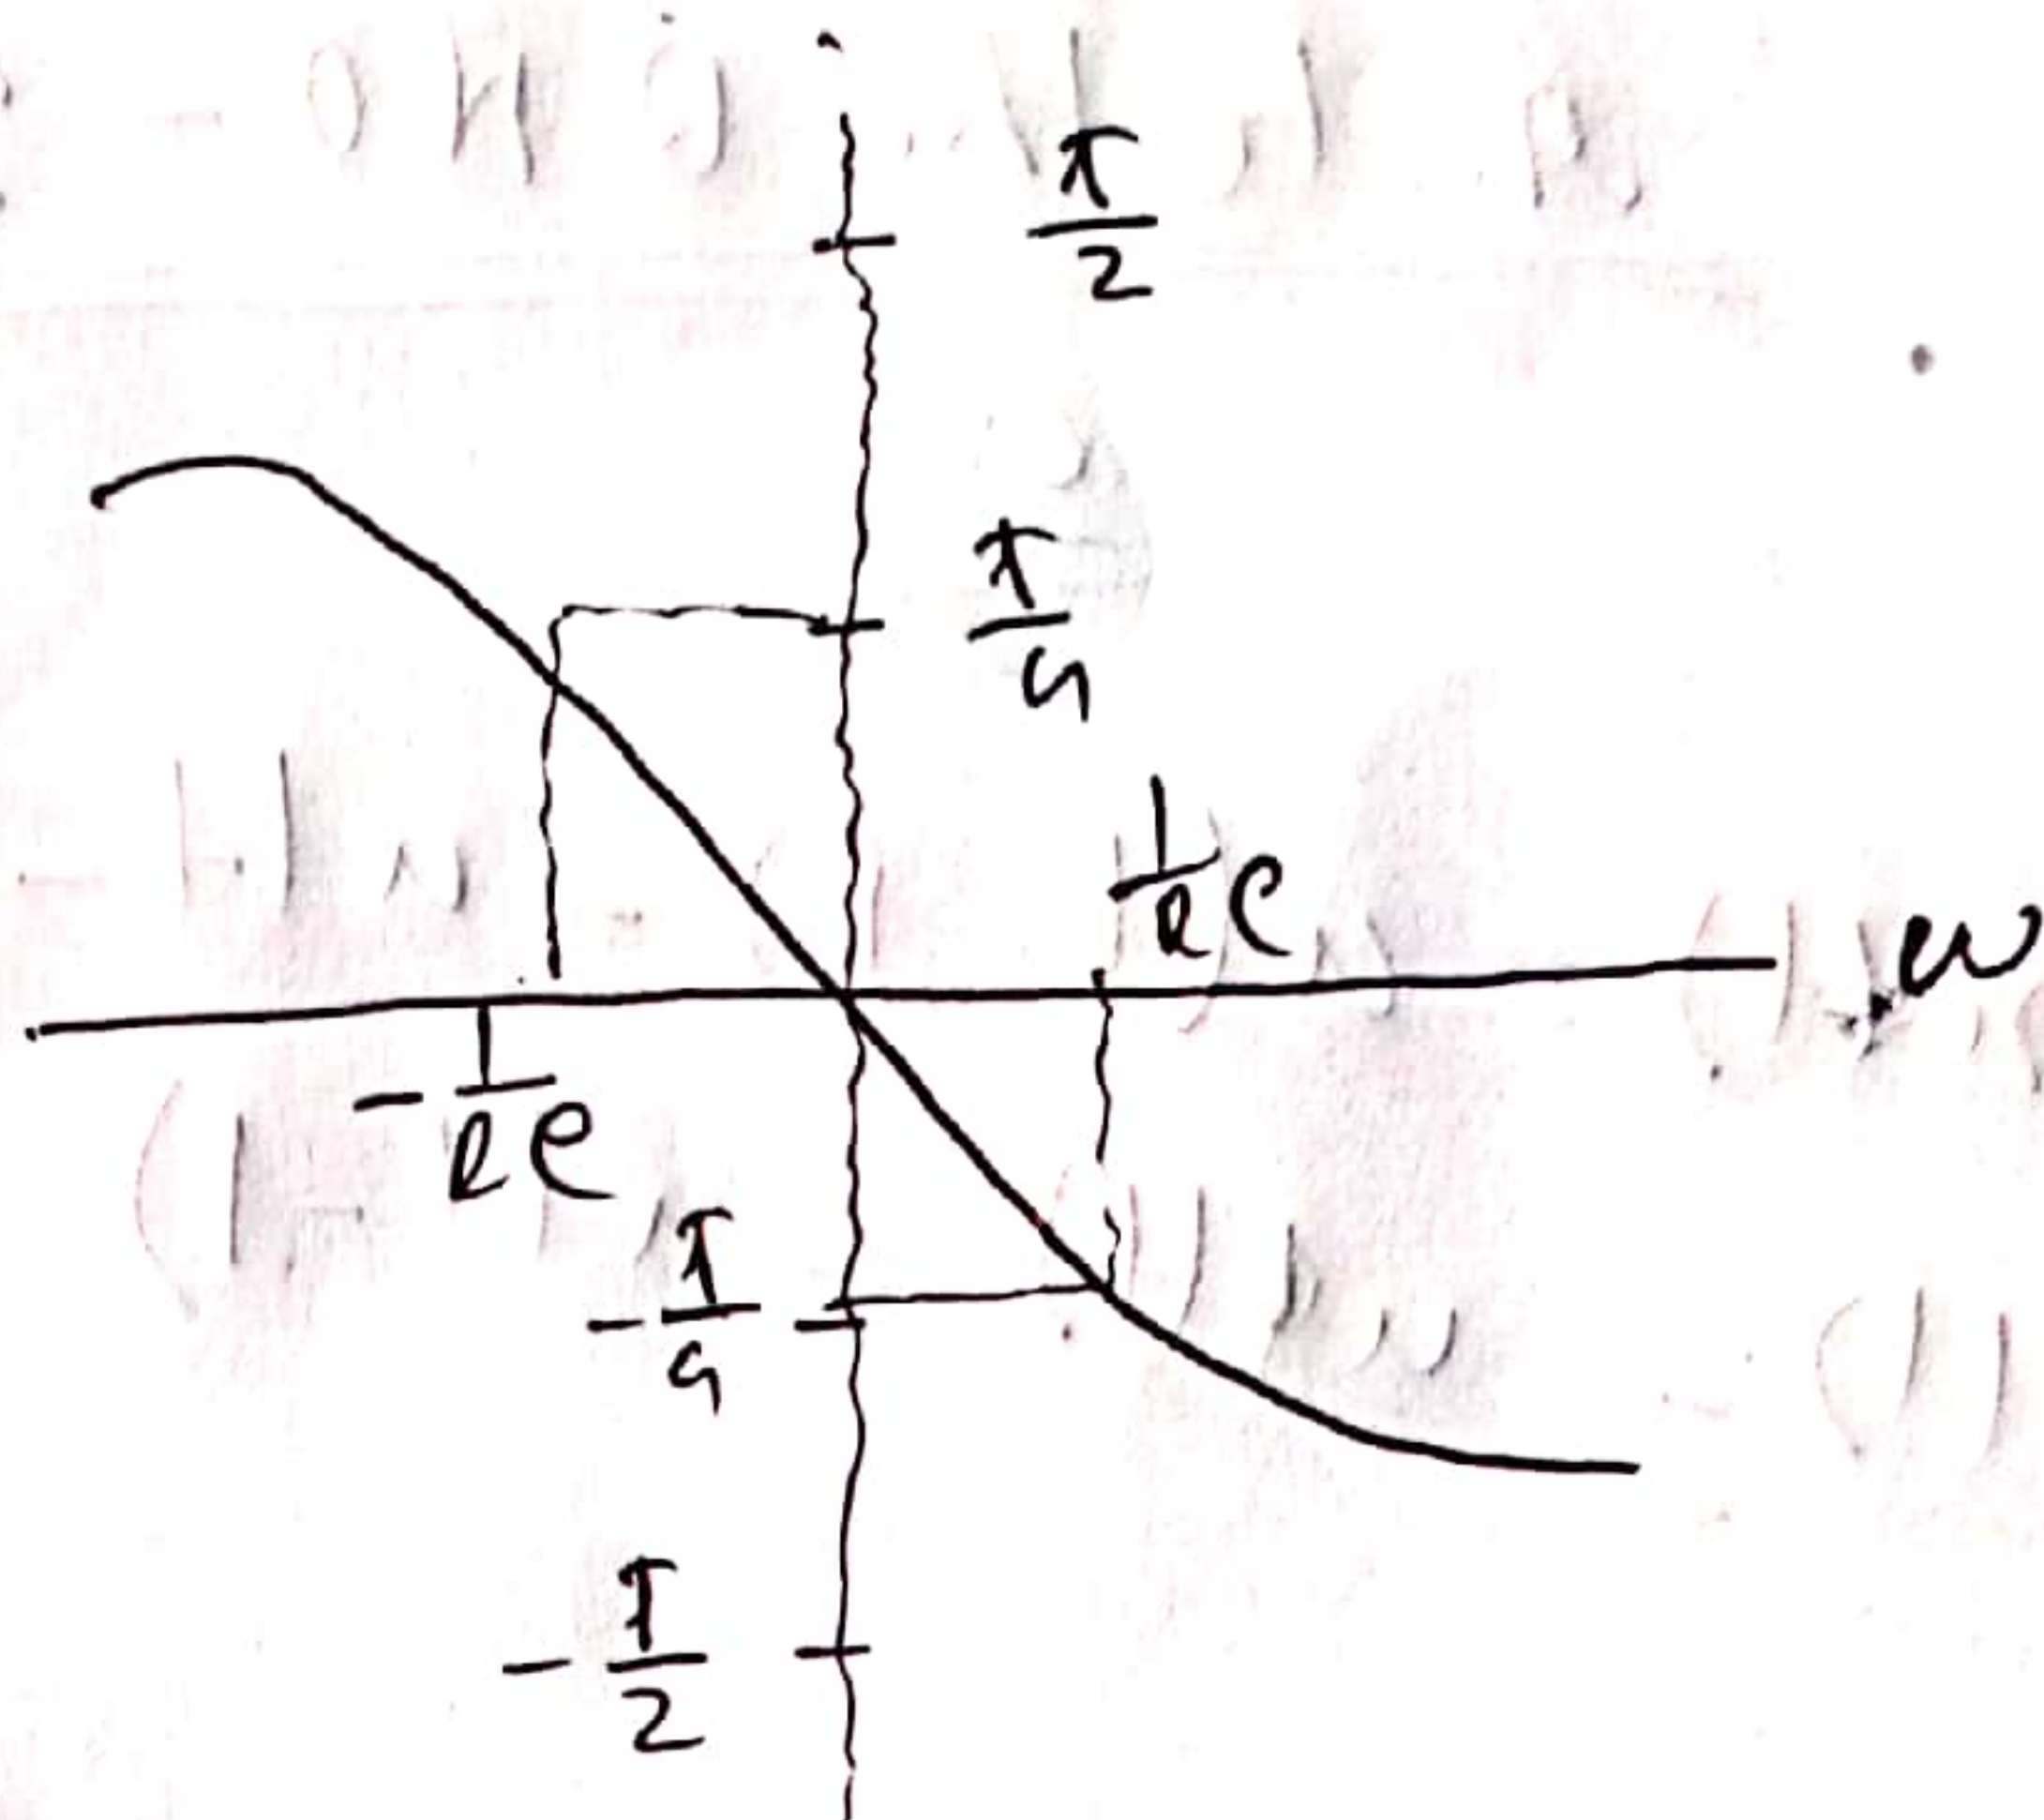 π/2
π/4
1/RC
ω
-1/RC
-π/4
-π/2